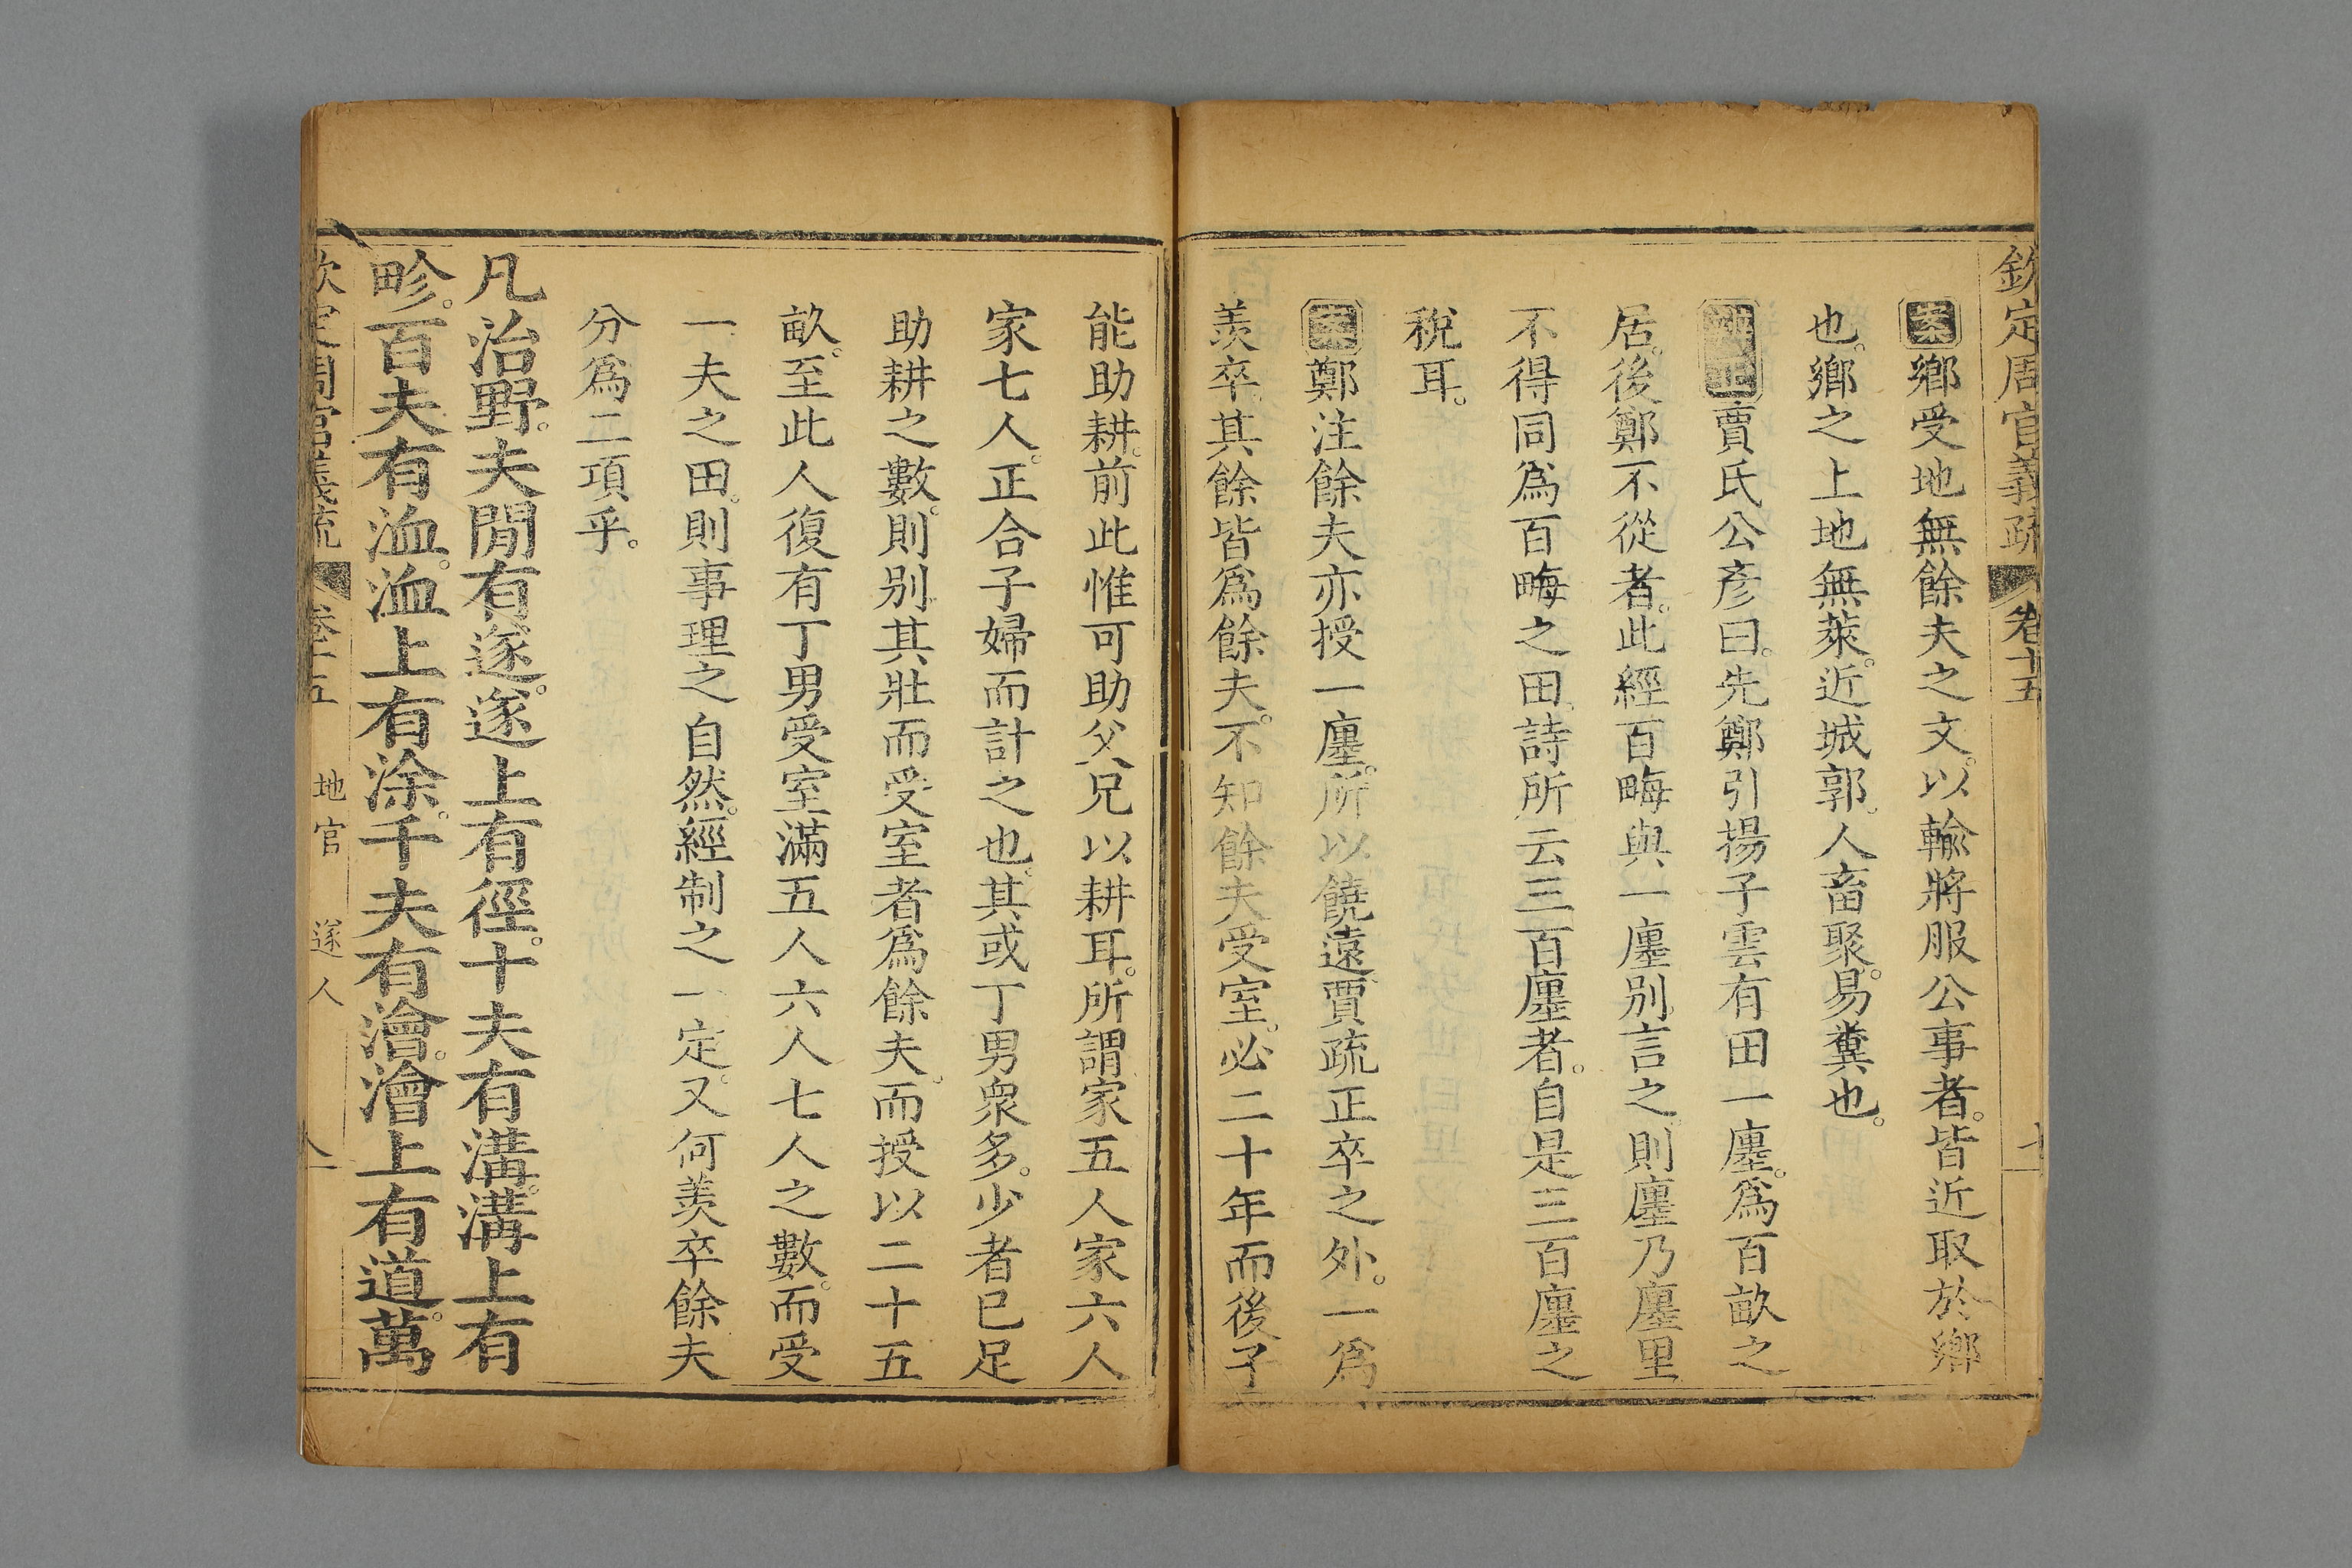 欽定周官義疏 卷十五
案鄉受地無餘夫之文。以輸將服公事者。皆近取於鄉
也。鄉之上地無萊。近城郭。人畜聚。易糞也。
辨正賈氏公彥曰。先鄭引揚子雲有田一廛。爲百畝之
居。後鄭不從者。此經百畮與一廛別言之。則廛乃廛里
不得同爲百畮之田。詩所云三百廛者。自是三百廛之
稅耳。
案鄭注餘夫亦授一廛。所以饒遠。賈疏正卒之外。一爲
羨卒。其餘皆爲餘夫。不知餘夫受室。必二十年而後子
能助耕。前此惟可助父兄以耕耳。所謂家五人家六人
家七人。正合子婦而計之也。其或丁男衆多。少者已足
助耕之數。則別其壯而受室者爲餘夫。而授以二十五
畝。至此人復有丁男受室滿五人六人七人之數。而受
一夫之田。則事理之自然。經制之一定。又何羨卒餘夫
分爲二項乎。
凡治野。夫閒有遂。遂上有徑。十夫有溝。溝上有
畛。百夫有洫。洫上有涂。千夫有澮。澮上有道。萬
欽定周官義疏 卷十五 地官 遂人